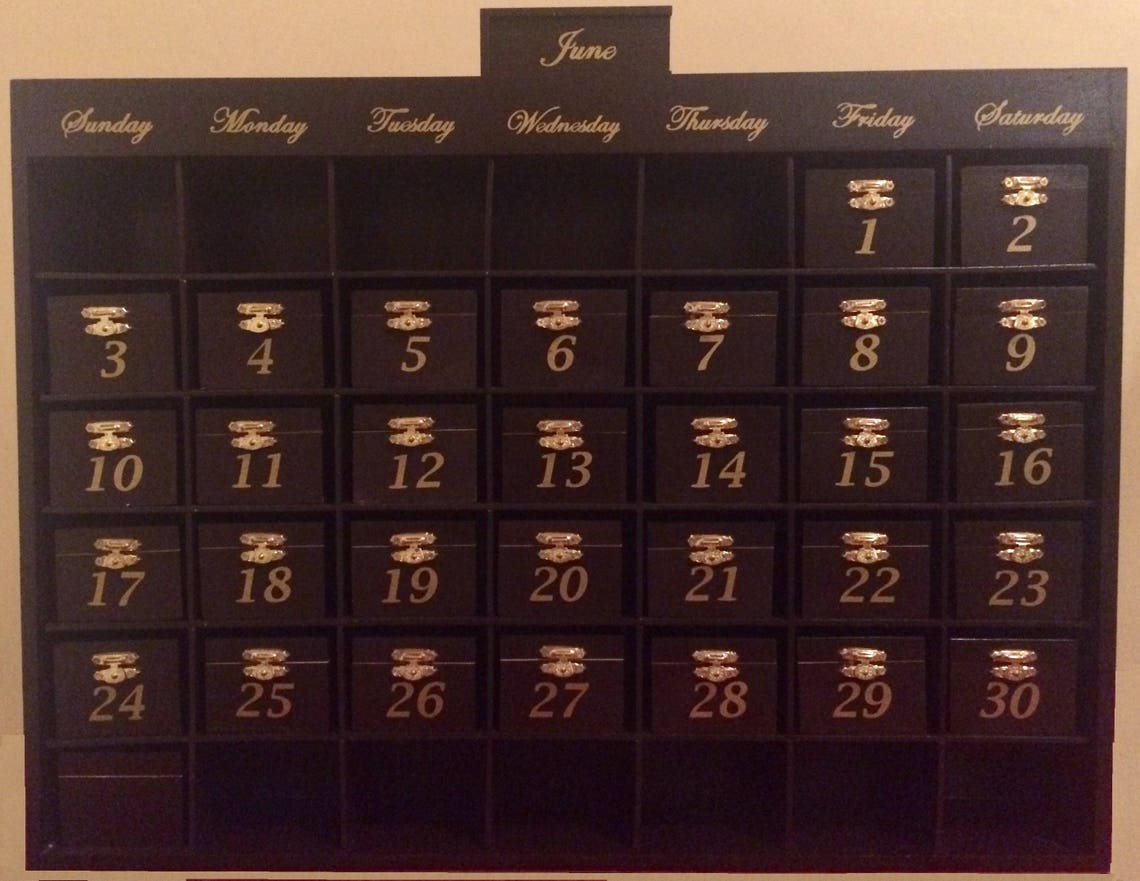 June
Sunday Monday Tuesday Wednesday Thursday Friday Saturday
1 2
3 4 5 6 7 8 9
10 11 12 13 14 15 16
17 18 19 20 21 22 23
24 25 26 27 28 29 30